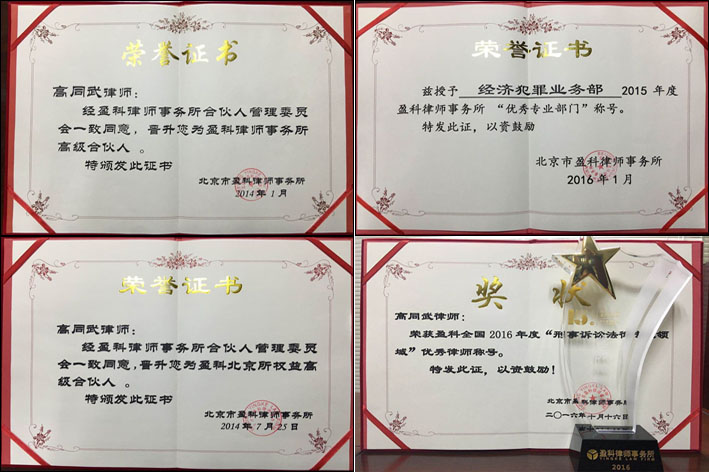 荣誉证书
高同武律师：
经盈科律师事务所合伙人管理委员
会一致同意，晋升您为盈科律师事务所
高级合伙人 。
特颁发此证书
北京市盈科律师事务所
2014 年 1 月
荣誉证书
兹授予 经济犯罪业务部 2015 年度
盈科律师事务所 “优秀专业部门”称号。
特发此证，以资鼓励
北京市盈科律师事务所
2016 年 1 月
荣誉证书
高同武律师：
经盈科律师事务所合伙人管理委员
会一致同意，晋升您为盈科北京所权益高
级合伙人 。
特颁发此证书
北京市盈科律师事务所
2014 年 7 月 25 日
奖 状
高同武律师：
荣获盈科全国 2016 年度 “刑事诉讼法律 领
域” 优秀律师称号。
特发此证，以资鼓励！
北京市盈科律师事务
二〇一六年十月十六日
盈科律师事务所
YINGKE LAW FIRM
2016